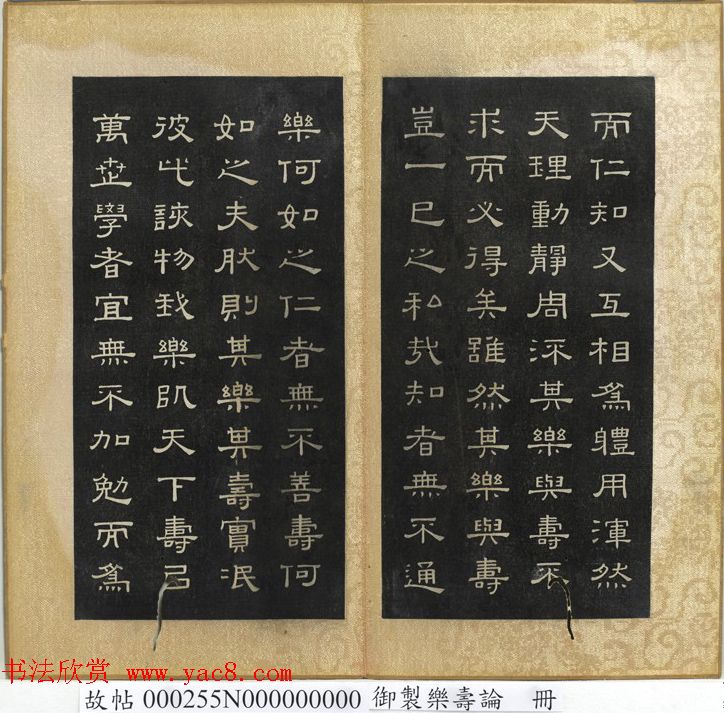 而仁知又互相爲體用渾然
天理動靜周流其樂與壽不
求而必得矣雖然其樂與壽
豈一己之私哉知者無不通
樂何如之仁者無不善壽何
如之夫肰則其樂其壽實泯
彼此該物我樂即天下壽㠯
萬世學者宜無不加勉而爲
书法欣赏 www.yac8.com
故帖 000255N000000000 御製樂壽論 冊